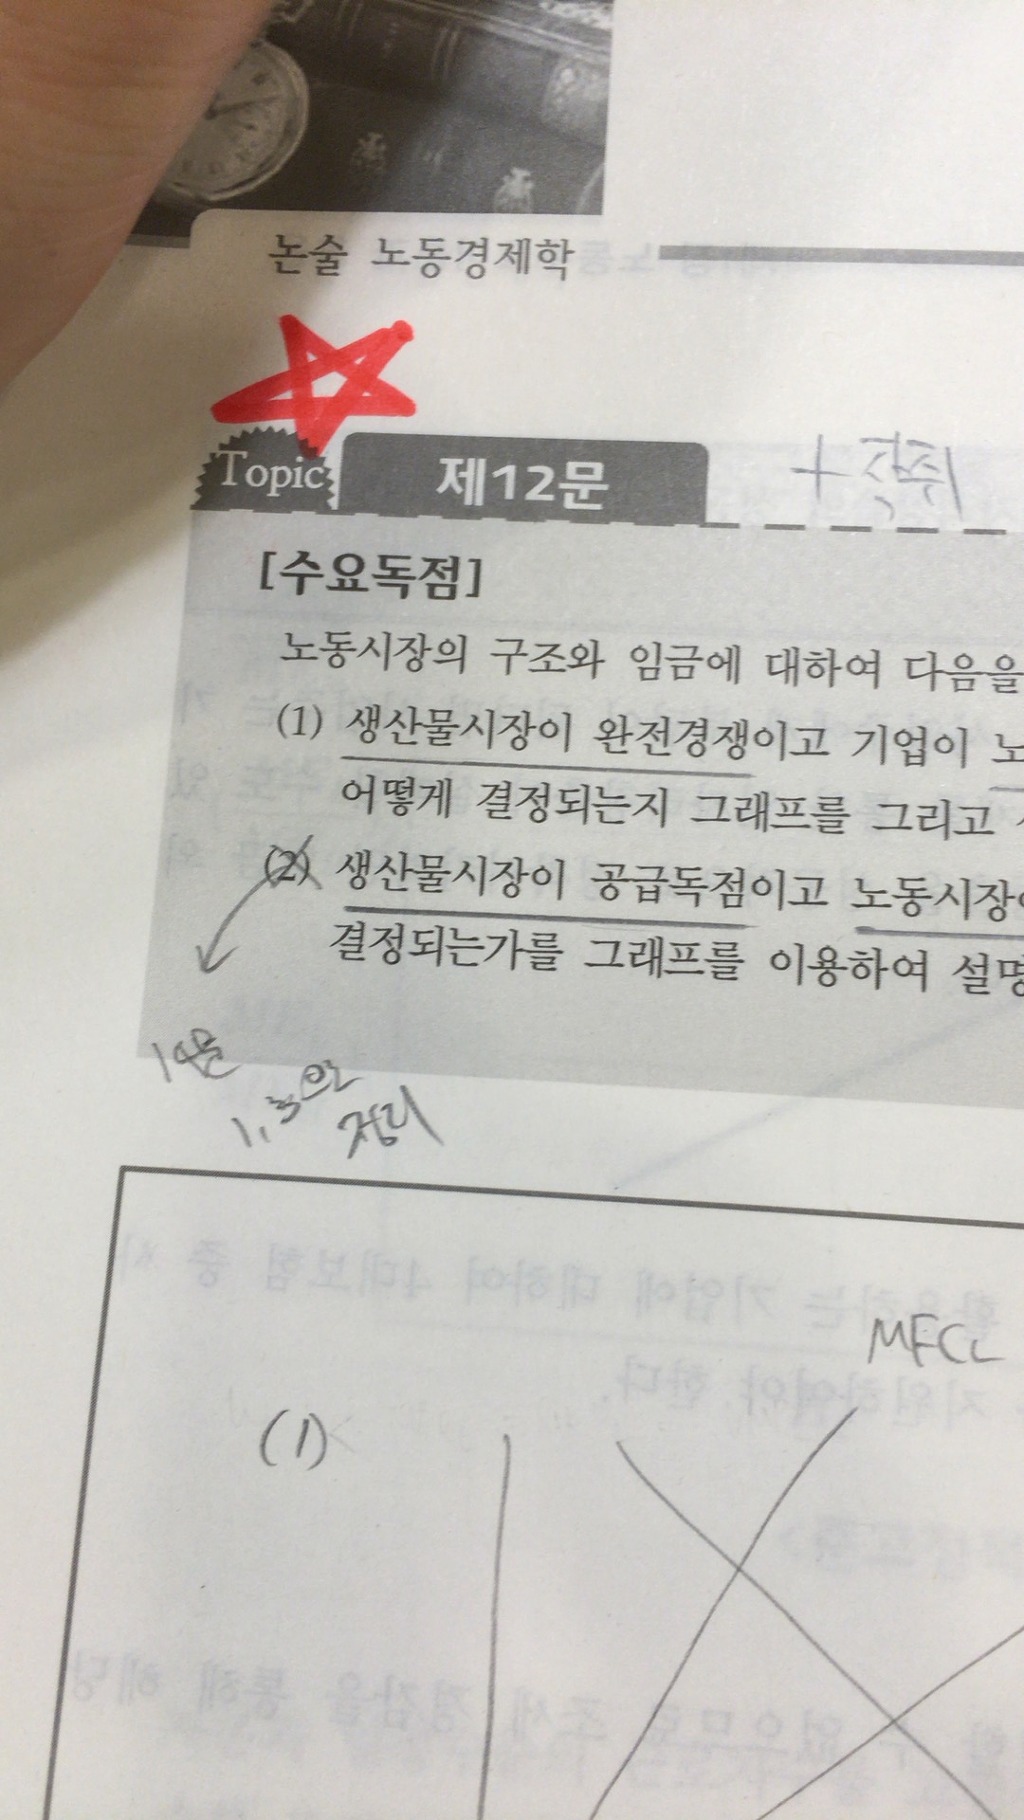 논술 노동경제학
Topic 제12문 + 착취
[수요독점]
노동시장의 구조와 임금에 대하여 다음을
(1) 생산물시장이 완전경쟁이고 기업이 노
어떻게 결정되는지 그래프를 그리고
(2) 생산물시장이 공급독점이고 노동시장이
결정되는가를 그래프를 이용하여 설명
1, 3으로
정리
MFCL
(1)